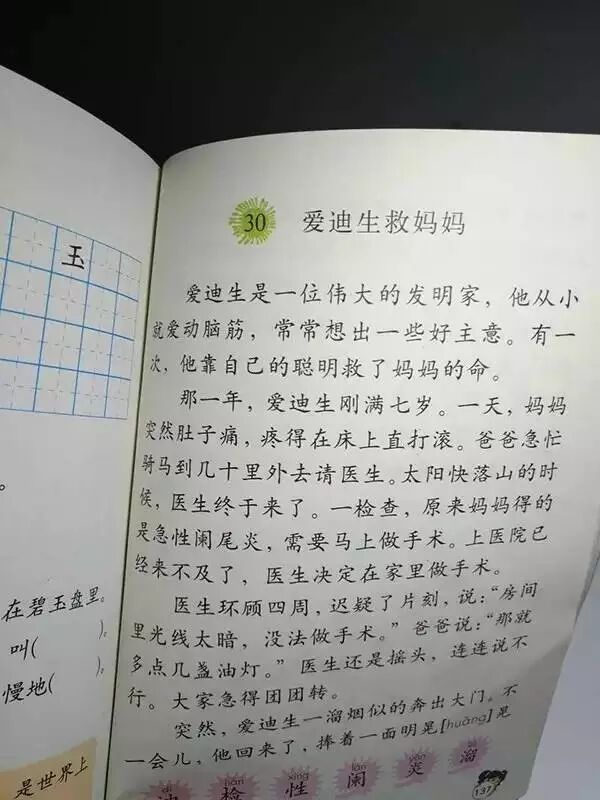 玉
。
在碧玉盘里。
叫(　　)。
慢地(　　)。
是世界上
30 爱迪生救妈妈
爱迪生是一位伟大的发明家，他从小
就爱动脑筋，常常想出一些好主意。有一
次，他靠自己的聪明救了妈妈的命。
那一年，爱迪生刚满七岁。一天，妈妈
突然肚子痛，疼得在床上直打滚。爸爸急忙
骑马到几十里外去请医生。太阳快落山的时
候，医生终于来了。一检查，原来妈妈得的
是急性阑尾炎，需要马上做手术。上医院已
经来不及了，医生决定在家里做手术。
医生环顾四周，迟疑了片刻，说：“房间
里光线太暗，没法做手术。”爸爸说：“那就
多点几盏油灯。”医生还是摇头，连连说不
行。大家急得团团转。
突然，爱迪生一溜烟似的奔出大门。不
一会儿，他回来了，捧着一面明晃[huǎng]晃
dí jiǎn xìng lán yán
迪 检 性 阑 炎 溜
137